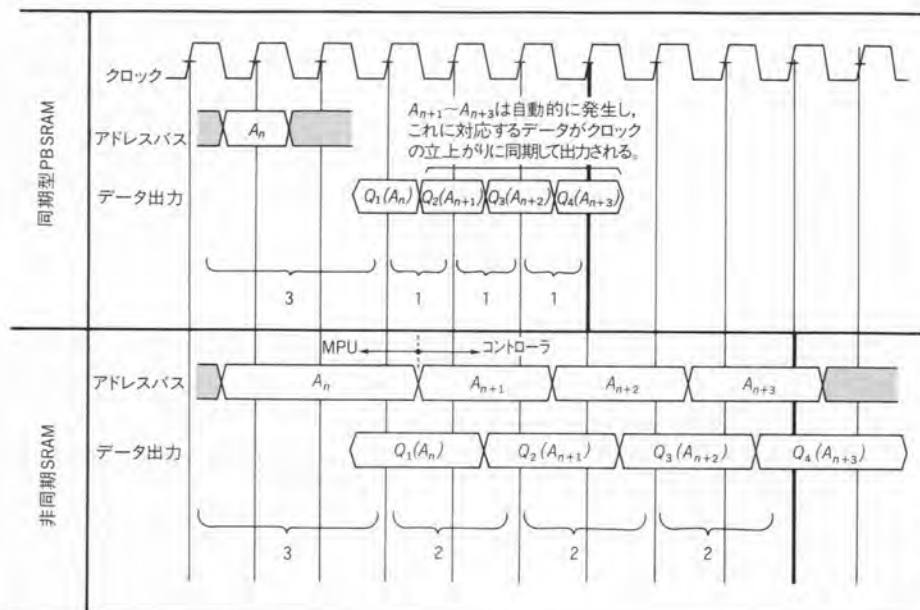 同期型PBSRAM
クロック
アドレスバス
An
An+1~An+3は自動的に発生し,
これに対応するデータがクロック
の立上がりに同期して出力される。
データ出力
Q1(An) Q2(An+1) Q3(An+2) Q4(An+3)
3 1 1 1
非同期SRAM
MPU コントローラ
アドレスバス
An An+1 An+2 An+3
データ出力
Q1(An) Q2(An+1) Q3(An+2) Q4(An+3)
3 2 2 2